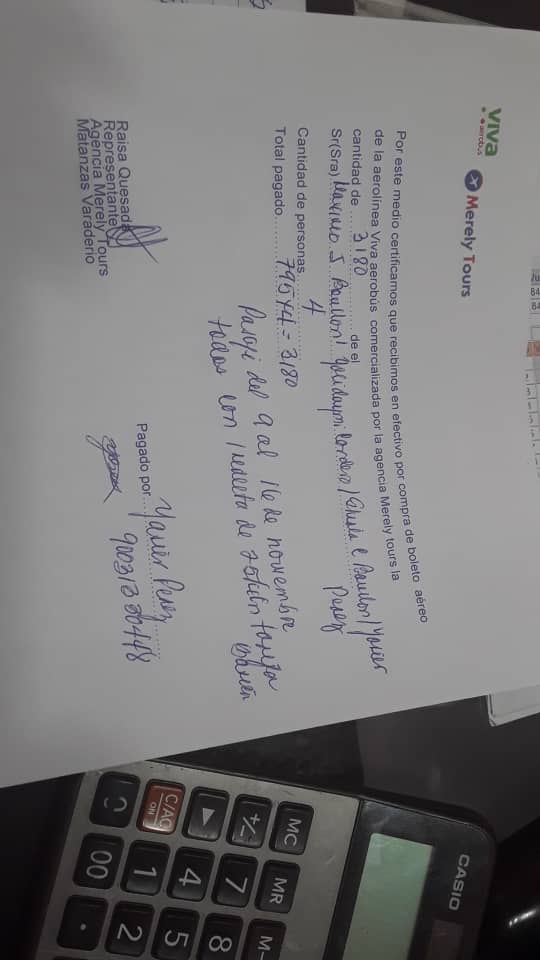 VIVA
aerobus
Merely Tours
Por este medio certificamos que recibimos en efectivo por compra de boleto aéreo
de la aerolínea Viva aerobús comercializada por la agencia Merely tours la
cantidad de 3180 de el
Sr(Sra) Maximo J Baullon / Yoridaymi Cordero / Baullon / Yavier
Perez
Cantidad de personas 4
Total pagado 795x4 = 3180
Pasaje del 9 al 16 de noviembre
todos con 1 de
Raisa Quesada
Representante
Agencia Merely Tours
Matanzas Varaderio
Pagado por Yavier Perez
CASIO
MC MR M-
+/- 7 8
▶ 4 5
C/AC ON 1 2
00 .